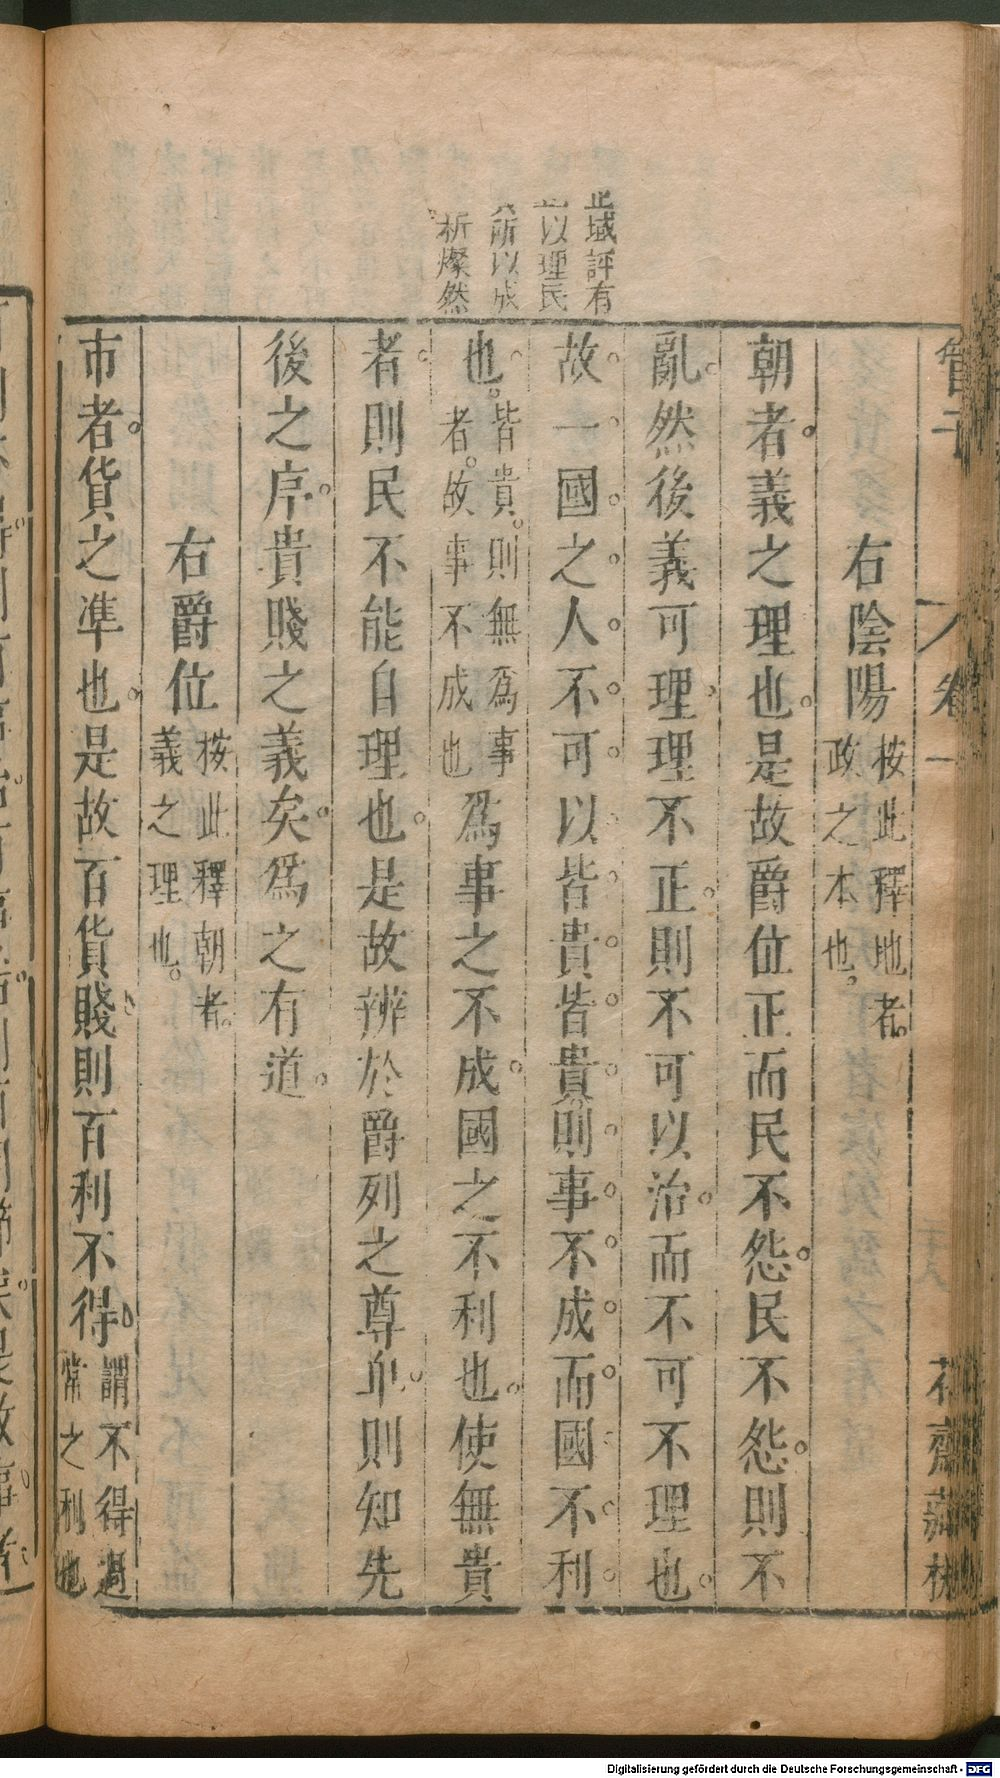 管子
卷一
花齋藏板
右陰陽 按此釋地者。政之本也。
朝者義之理也是故爵位正而民不怨民不怨則不
亂然後義可理理不正則不可以治而不可不理也
故一國之人不可以皆貴皆貴則事不成而國不利
也。皆貴。則無爲事者。故事不成也 爲事之不成國之不利也使無貴
者則民不能自理也是故辨於爵列之尊卑則知先
後之序貴賤之義矣爲之有道
右爵位 按此釋朝者。義之理也。
市者貨之準也是故百貨賤則百利不得 謂不得過常之利也
域評有
以理民
所以成
析燦然
Digitalisierung gefördert durch die Deutsche Forschungsgemeinschaft - DFG